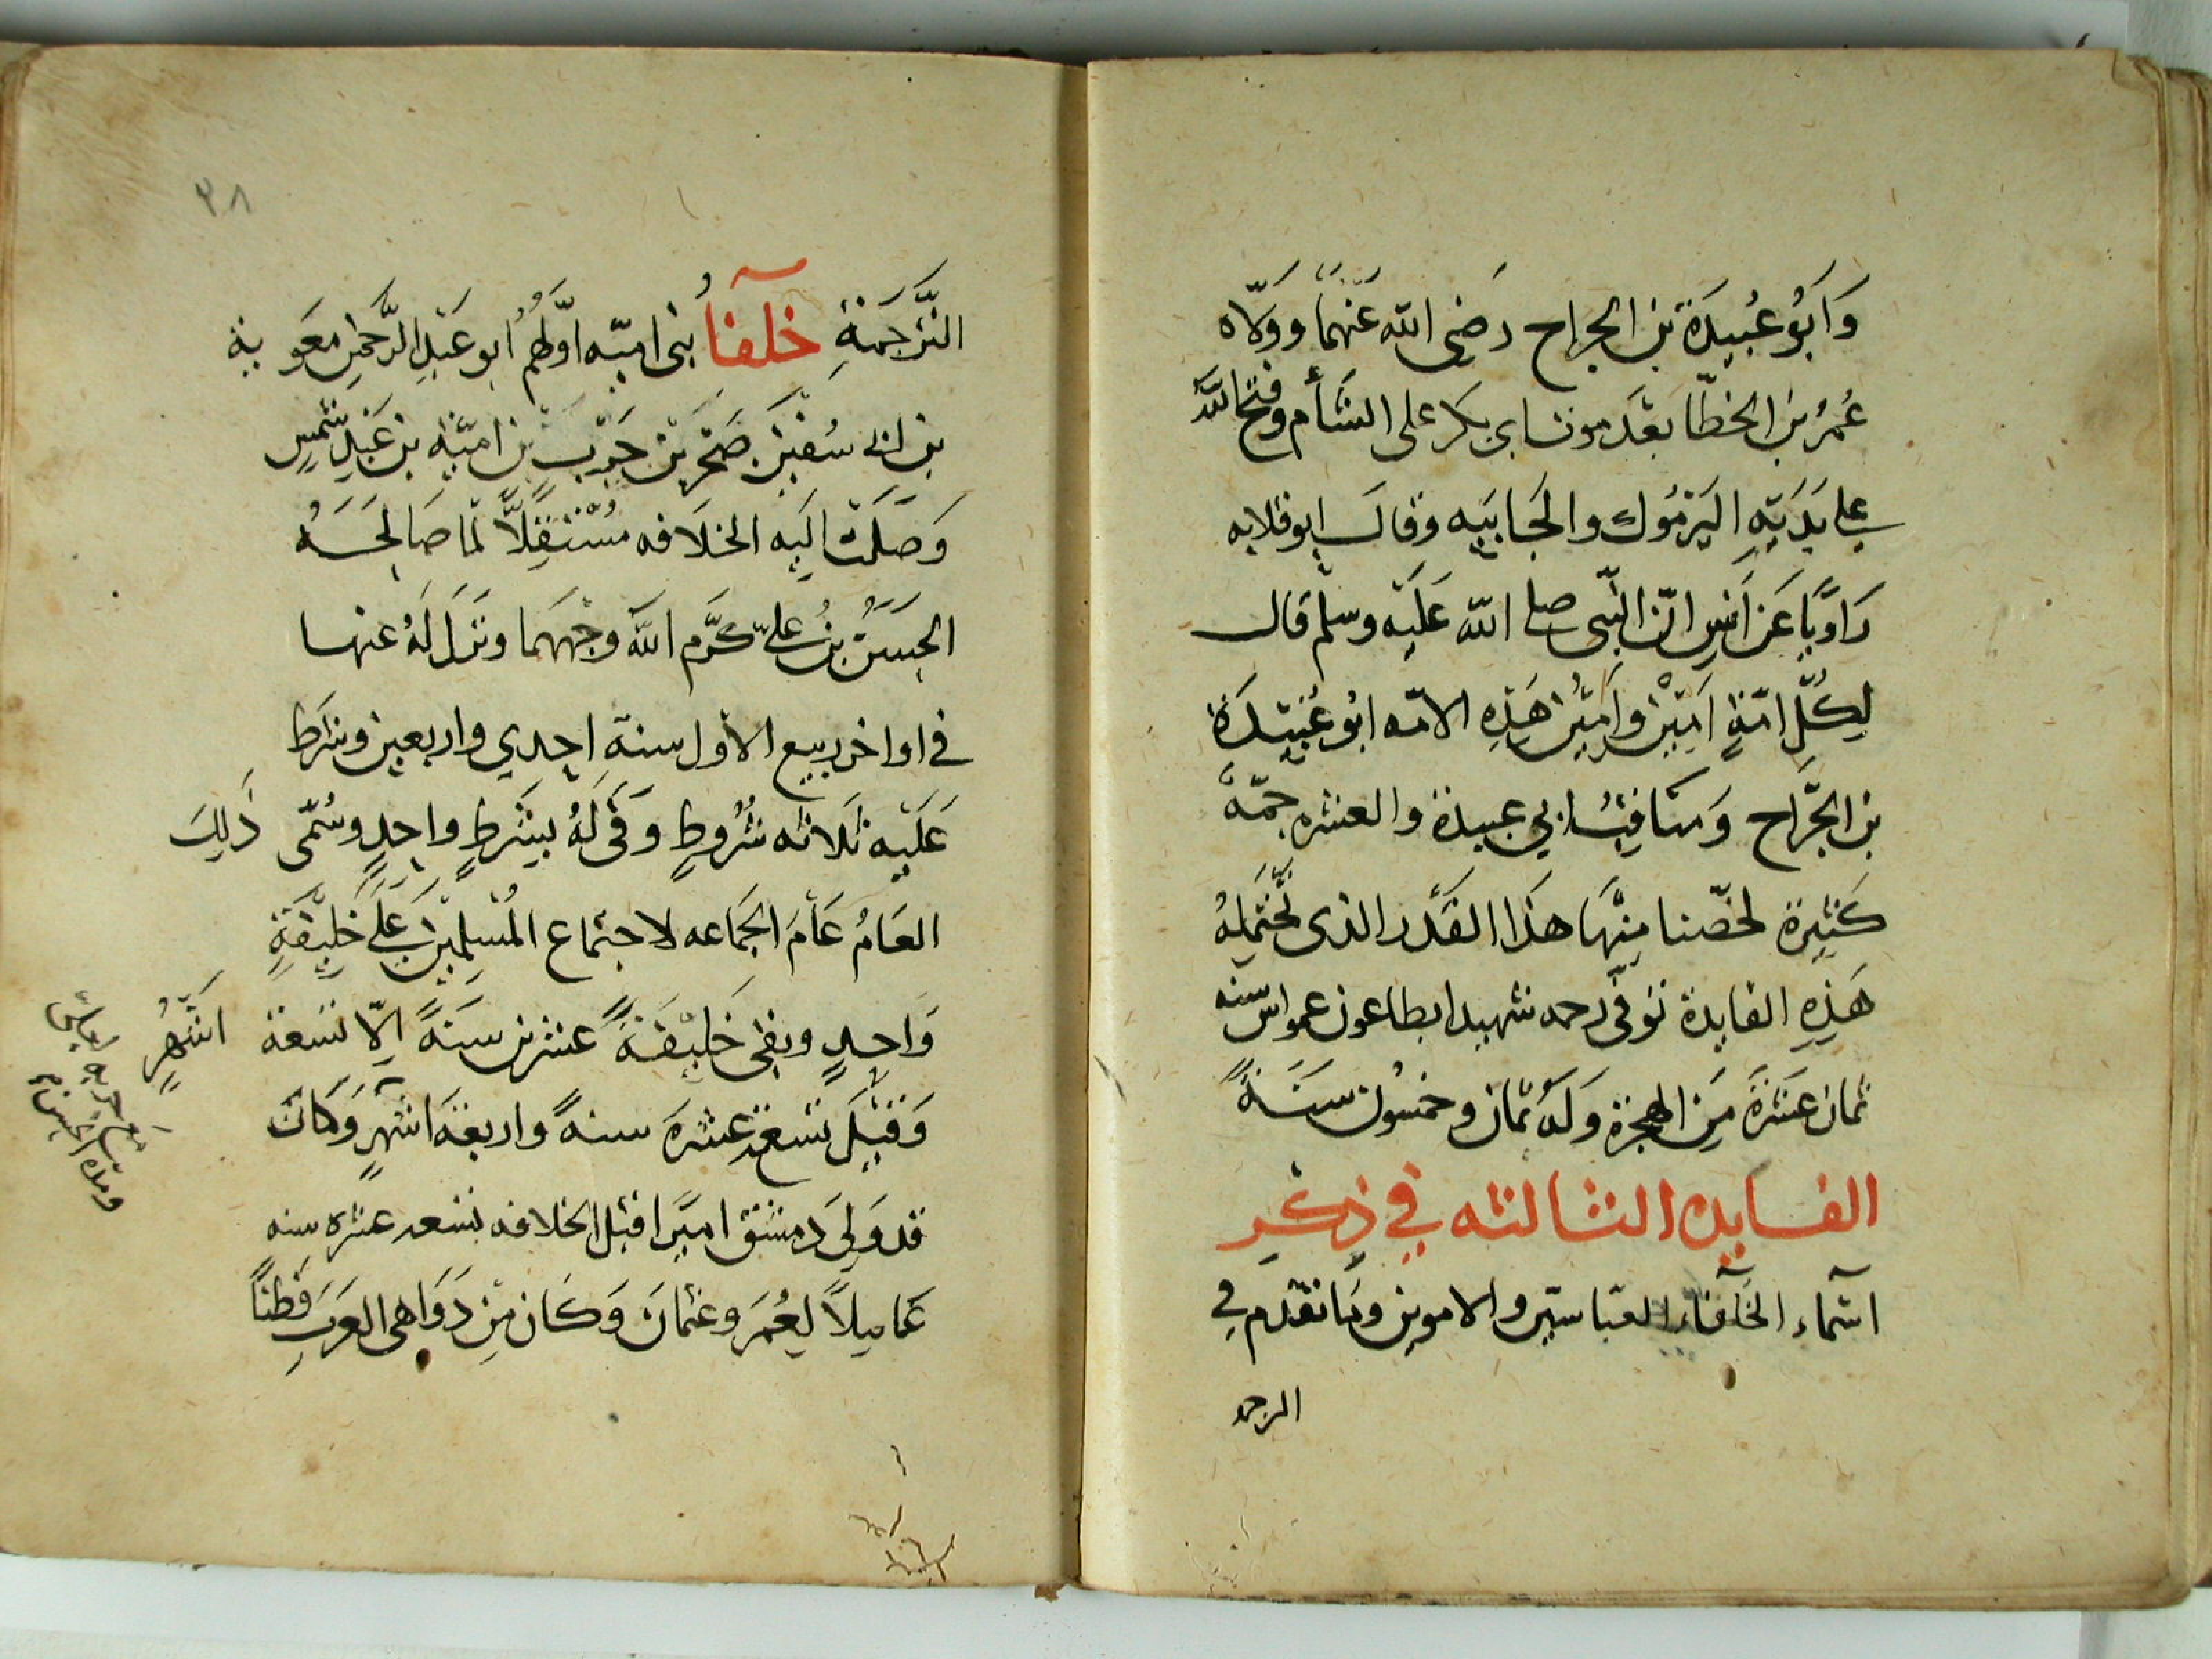 وَاَبُو عُبيدَة بن الجراح رَضى الله عَنهما وولاه
عُمرُ بن الخطّا بَعْدَ موت ابى بكر على الشأم وفتح الله
على يَدَيْهِ اليَرْمُوك والجَابيَه وقال ابو قلابه
رَاويًا عَن اَنسٍ انّ النّبى صلى الله عَلَيْه وسلم قال
لِكُلِّ امّةٍ اَمِيْن وَاَمِيْن هَذِهِ الامّه ابُو عُبَيْدَة
بن الجَّراح وَمنَاقبُ ابي عبيدة والعشره جمّةً
كَثيرة لخصّنا مِنْهَا هَذا القَدْر الذى تحتمله
هَذِهِ الفايدة تُوفّى رحمه شهيدا بطاعون عمواس سنه
ثمان عَشرَة مِنَ الهجرة وَلَهُ ثمان وخمسُون سَنَةً
الفايده الثالثه في ذِكْرِ
اسْماء الخَلفَاء العبّاسيّين والامويين ومَا تقدم في
الترجمه
٢٨
التَّرجَمَةِ خلفآءُ بنى اميّه اوّلهُمُ ابو عَبْدِ الرَّحمٰنِ معَوية
بن ابى سُفيٰن صَخرِ بْنِ حَرْبِ بْن اميّة بن عَبْدِ شمسٍ
وَصَلَت اليَه الخلَافه مُسْتَقِلًّا لما صَالحَهُ
الحِسَنُ بنُ علىّ كرَّم اللّهُ وجههمَا ونَزل لَهُ عنها
في اواخر ربيع الاول سنة احدي واربعين وشرط
عَلَيْهِ ثلَاثه شُرُوطٍ وَفَى لَهُ بِشَرطٍ واحِدٍ وسُمّى ذَلِكَ
العَامُ عَامَ الجَمَاعه لاجتماع المُسْلِميْن عَلَى خَلِيْفَةٍ
وَاحِدٍ وبقى خَلِيْفَةً عشرين سَنَةً اِلّا تسعة اشْهُرٍ
وَقيْلَ تسْعَة عشرَةَ سنةً واربعَة اشهُرٍ وَكَانَ
قد وَلىَ دِمَشق اميرًا قبل الخلافه تسعه عشره سنه
عَامِلاً لِعُمَرَ وعثمانَ وَكانَ مِن دَوَاهى العَرَبِ فَطِنًا